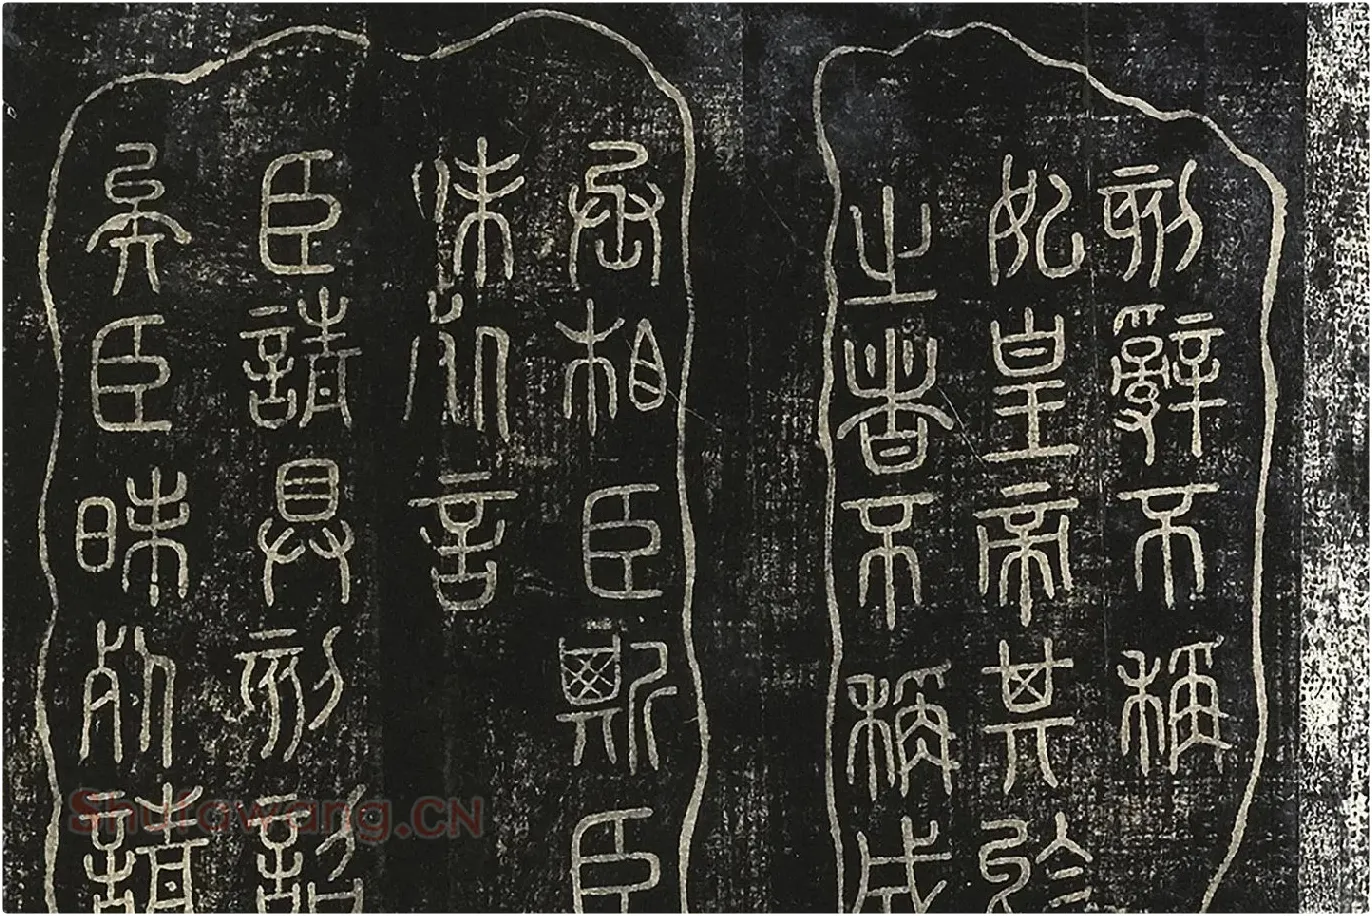 刻辭不稱
始皇帝其於
之者不稱成
丞相臣斯臣
昧死言
臣請具刻詔
矣臣昧死請
Shufawang.CN